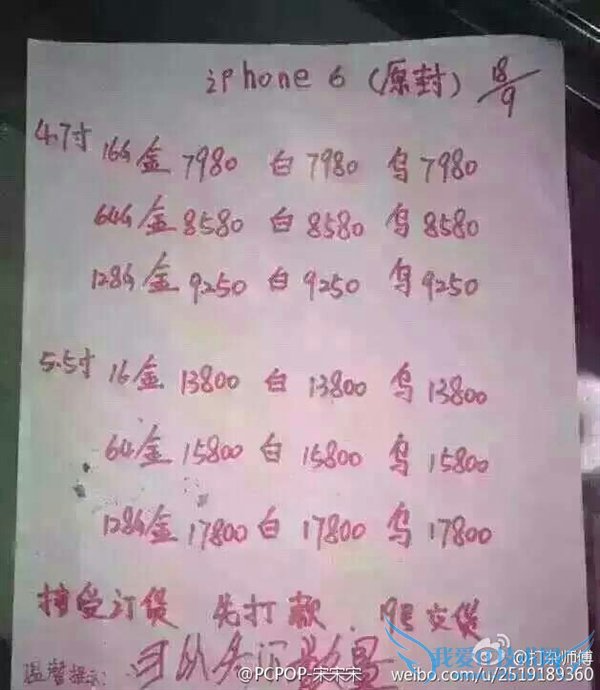 iPhone 6 (原封) 18/9
4.7寸 16G 金 7980 白 7980 乌 7980
64G 金 8580 白 8580 乌 8580
128G 金 9250 白 9250 乌 9250
5.5寸 16 金 13800 白 13800 乌 13800
64 金 15800 白 15800 乌 15800
128G 金 17800 白 17800 乌 17800
接受订货 先打款. 19号交货
温馨提示:
@PCPOP-宋宋宋
@打杂师傅
weibo.com/u/2519189360